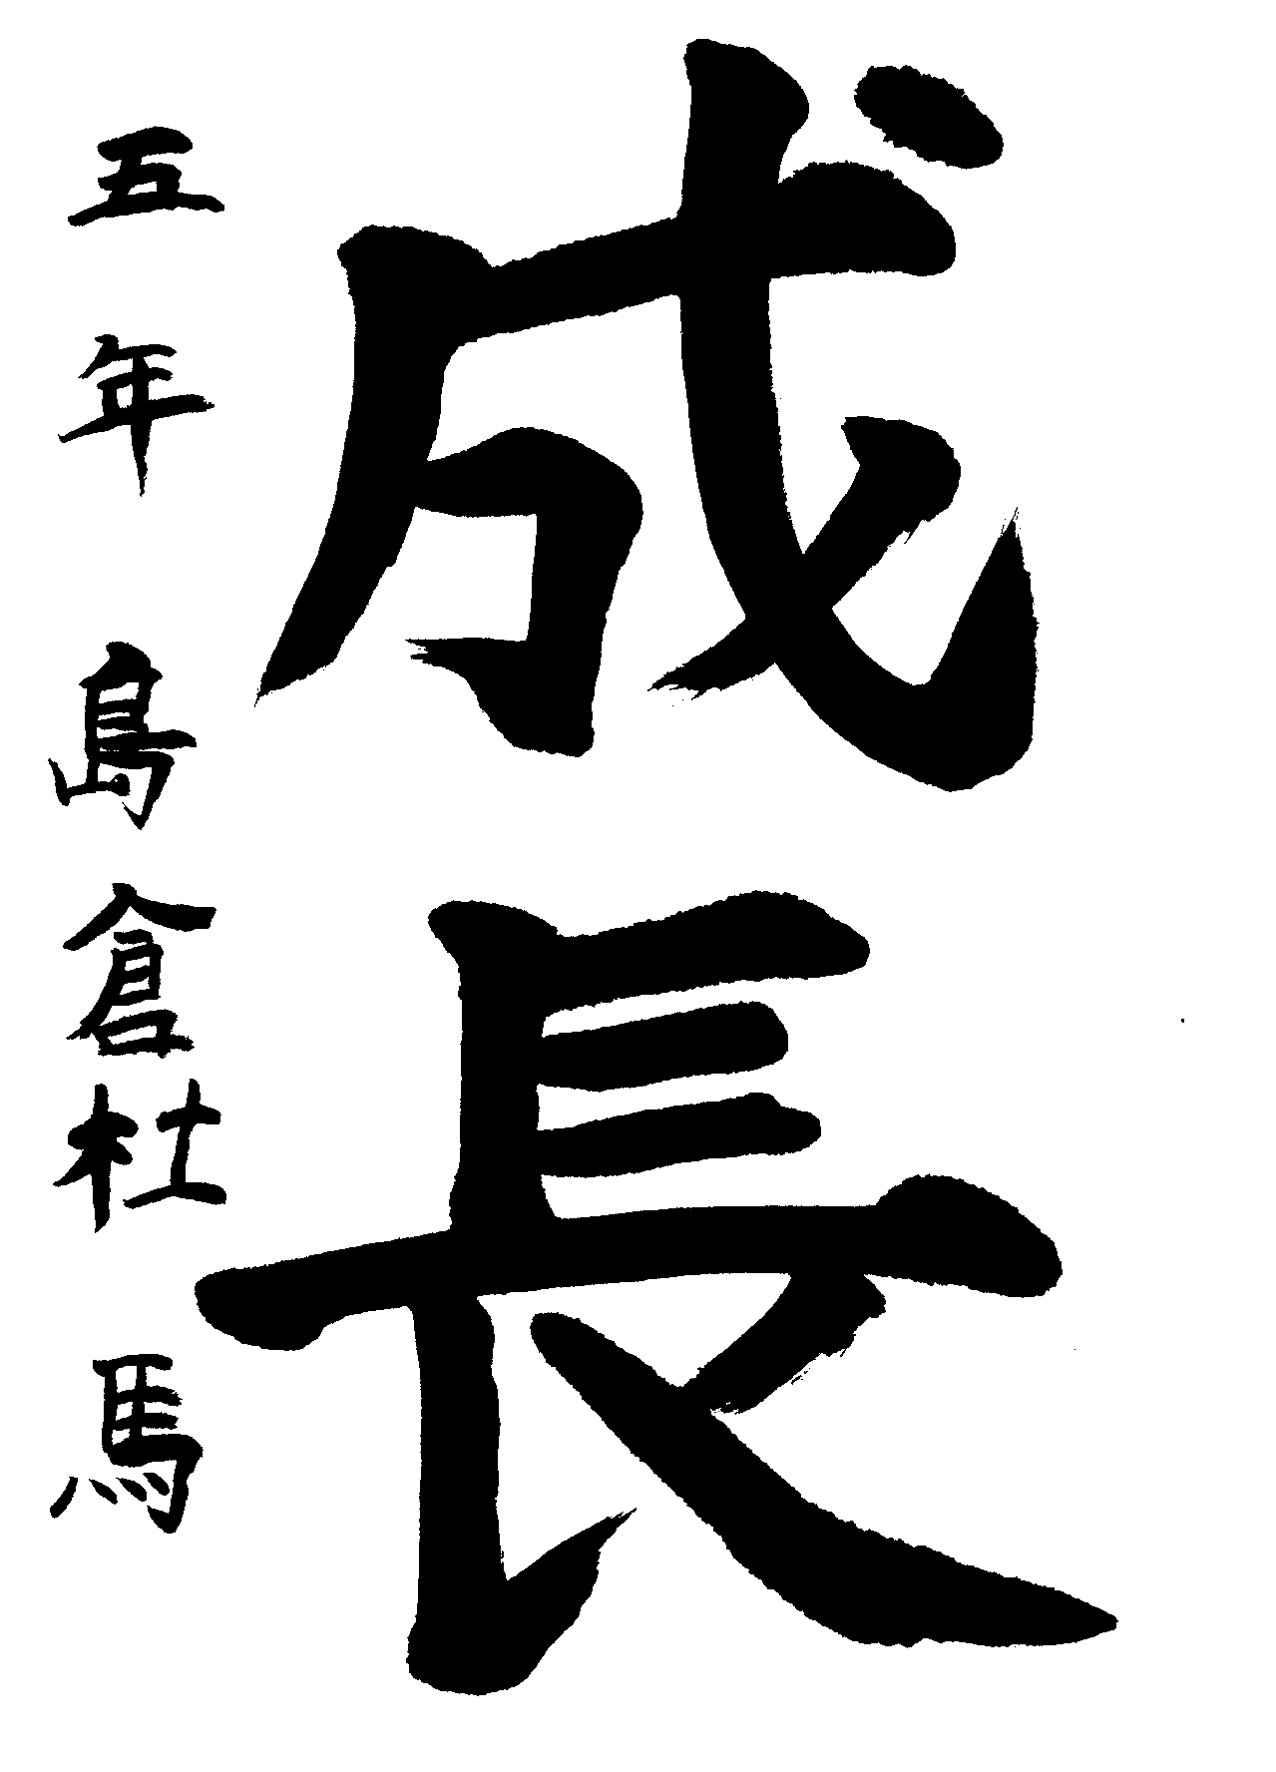 成長
五年 島倉杜馬